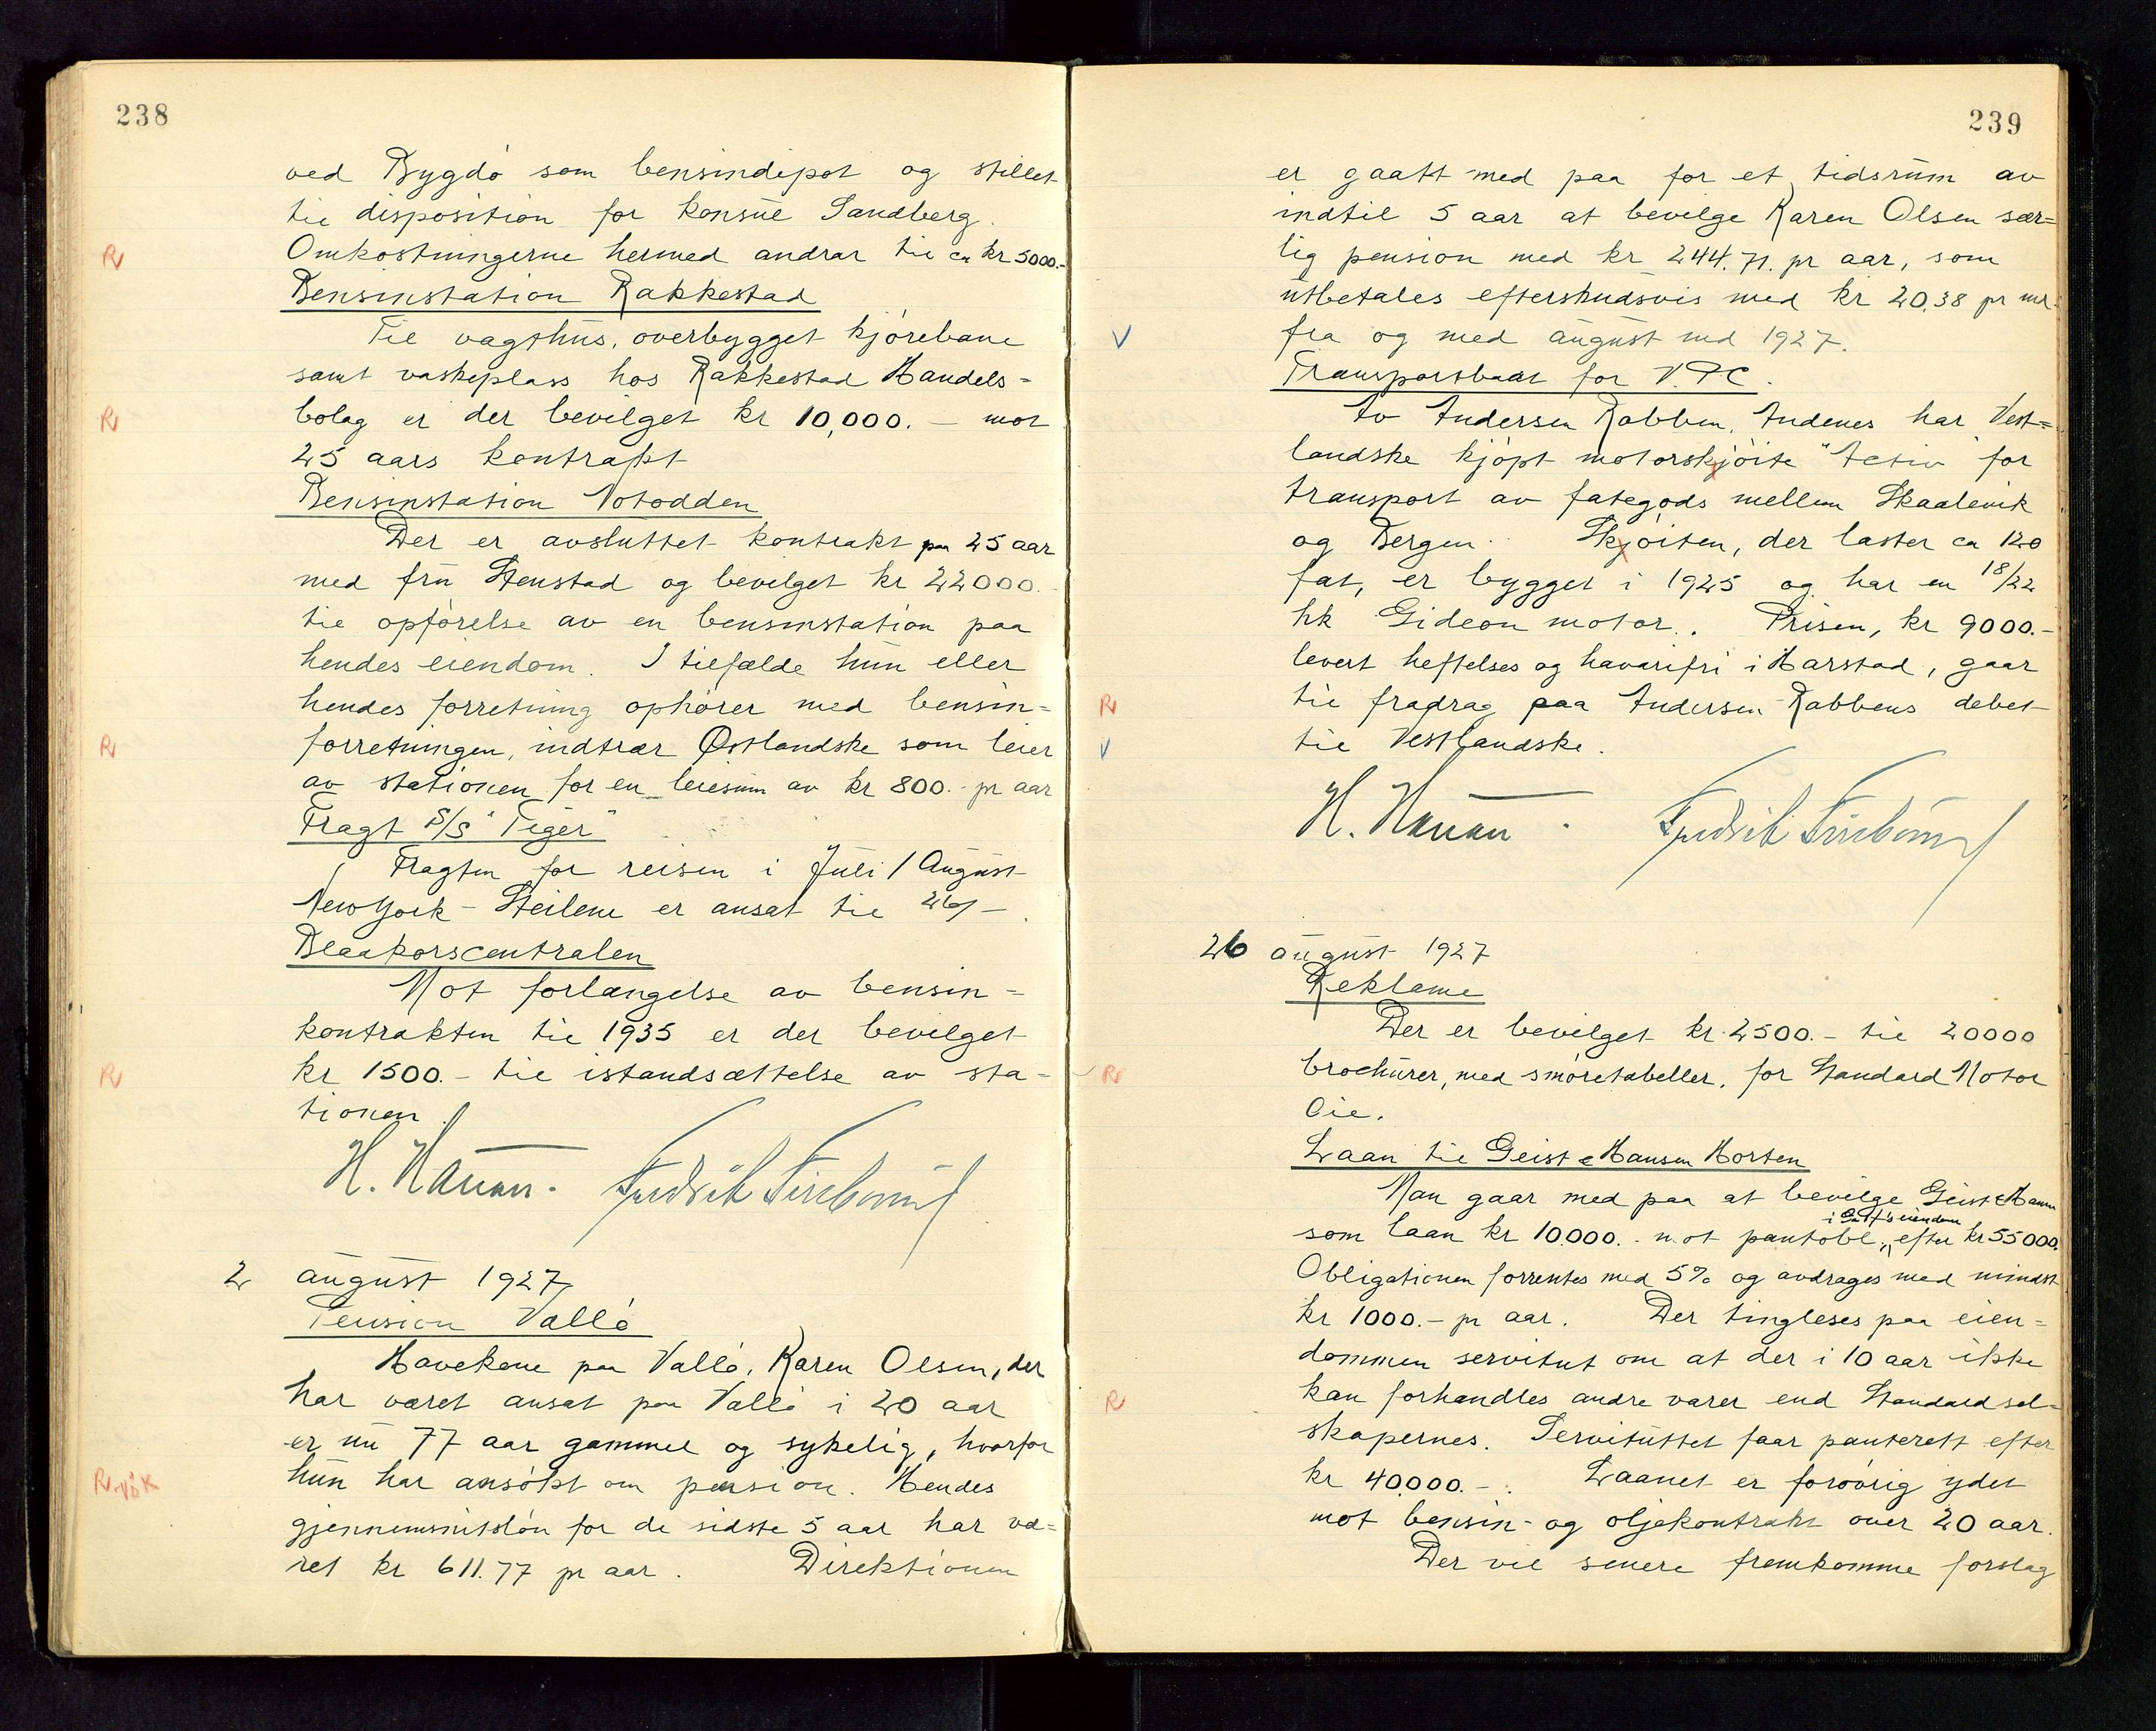 238
ved Bygdö som bensindepot og stillet
til disposition for konsul Sandberg.
Omkostningerne hermed andrar til ca kr 5000.-
R
Bensinstation Rakkestad
Til vagthus, overbygget kjörebane
samt vaskeplass hos Rakkestad Handels=
bolag er der bevilget kr 10,000.- mot
R
25 aars kontrakt
Bensinstation Notodden
Der er avsluttet kontrakt paa 25 aar
med fru Stenstad og bevilget kr 22000.-
til opförelse av en bensinstation paa
hendes eiendom. I tilfælde hun eller
hendes forretning ophörer med bensin=
forretningen, indtrær Østlandske som leier
R
av stationen for en leiesum av kr 800.- pr aar
Fragt S/S "Tiger"
Fragten for reisen i Juli / August
New York - Steilene er ansat til 26/-.
Blaakorscentralen
Mot forlængelse av bensin=
kontrakten til 1935 er der bevilget
kr 1500.- til istandsættelse av sta=
R
tionen.
H. Hauan. Fredrik
2 august 1927
Pension Vallö
Havekone paa Vallö, Karen Olsen, der
har været ansat paa Vallö i 20 aar
er nu 77 aar gammel og sykelig, hvorfor
hun har ansökt om pension. Hendes
R
gjennemsnitslön for de sidste 5 aar har væ=
ret kr 611.77 pr aar. Direktionen
239
er gaatt med paa for et tidsrum av
indtil 5 aar at bevilge Karen Olsen sær=
lig pension med kr 244.71. pr aar, som
utbetales efterskudsvis med kr 20.38 pr md.
fra og med august md 1927.
V
Transportbaat for V.P.C.
Av Andersen Rabben, Andenes har Vest=
landske kjöpt motorskjöite "Activ" for
transport av fategods mellem Skaalevik
og Bergen. Skjöiten, der laster ca 120
fat, er bygget i 1925 og har en 18/22
hk Gideon motor. Prisen, kr 9000.-
levert heftelses og havarifri i Harstad, gaar
til fradrag paa Andersen Rabbens debet
R
til Vestlandske.
V
H. Hauan. Fredrik
26 august 1927
Reklame
Der er bevilget kr. 2500.- til 20000
brochurer, med smöretabeller, for Standard Motor
R
Oil.
Laan til Geist & Hansen Horten
Man gaar med paa at bevilge Geist & Hansen
som laan kr 10.000.- mot pantobl. i Geist's eiendom efter kr 55000.
Obligationen forrentes med 5% og avdrages med mindst
kr 1000.- pr aar. Der tingleses paa eien=
dommen servitut om at der i 10 aar ikke
kan forhandles andre varer end Standardsel=
R
skapernes. Servituttet faar panterett efter
kr 40.000.-. Laanet er forövrig ydet
mot bensin- og oljekontrakt over 20 aar.
Der vil senere fremkomme forslag